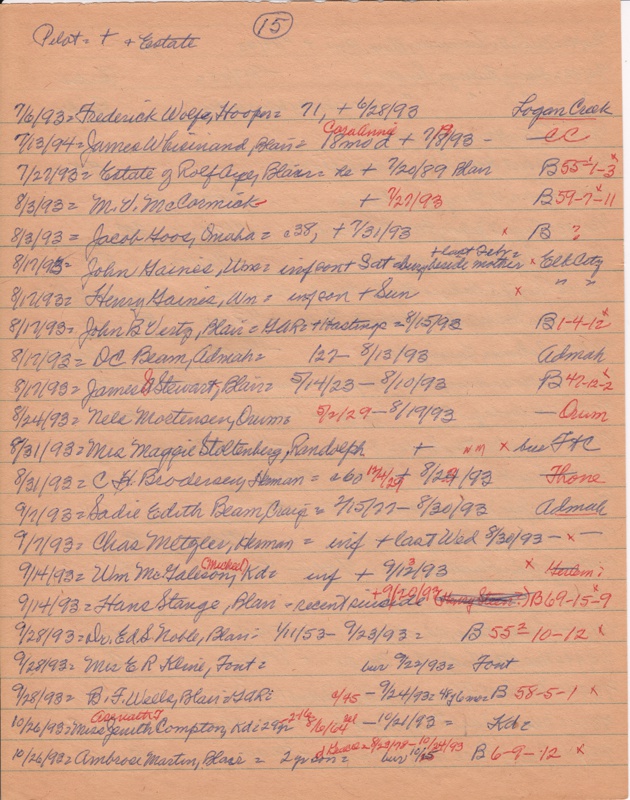 15
Pilot = + + Estate
7/6/93 = Frederick Wolfe, Hooper = 71, + 6/28/93 Logan Creek
Cora Anna 19
7/13/94 = James Whisinand, Blair = 18 mo d + 7/8/93 - CC
7/27/93 = Estate of Rolf, Blair = + 7/20/89 Blair B 55²-1-3 x
8/3/93 = M. V. McCormick + 7/27/93 B 59-7-11 x
8/3/93 = Jacob Hoos, Omaha = c38, + 7/31/93 x B ?
8/17/93 = John Gaines, Wm = inf son + Sat beside mother x Elk City
8/17/93 = Henry Gaines, Wn = inf son + Sun x " "
8/17/93 = John B Wertz, Blair = GAR = + Hastings = 8/15/93 B 1-4-12 x
8/17/93 = DC Beam, Admah = 127 - 8/13/93 Admah
8/17/93 = James Stewart, Blair = 5/14/23 - 8/10/93 B 47-12-2 x
8/24/93 = Nels Mortensen, Orum = 5/2/29 - 8/19/93 - Orum
8/31/93 = Mrs Maggie Stoltenberg, Randolph + nm x see FHC
8/31/93 = C H Brodersen, Herman = c60 12/4/29 + 8/29/93 Thone
9/7/93 = Sadie Edith Beam, Craig = 2/15/77 - 8/30/93 Admah
9/7/93 = Chas Metzler, Herman = inf + last Wed 8/30/93 - x -
(Michael)
9/14/93 = Wm McGaleson, Kd = inf + 9/12/93 x
+ 9/12/93
9/14/93 = Hans Stange, Blair - recent suicide B 69-15-9 x
9/28/93 = Dr. Ed S Noble, Blair = 1/11/53 - 9/23/93 = B 55² 10-12 x
9/28/93 = Mrs E R Kline, Font = bur 9/22/93 = Font
9/28/93 = B. F. Wells, Blair = GAR = c/45 - 9/24/93 = 48y 6 mo = B 58-5-1 x
10/26/93 = Miss Zenith Compton, Kd = 29y 8/6/64 - 10/21/93 = Kd =
8/29/78 - 10/24/93
10/26/93 = Ambrose Martin, Blair = 2 yr son = bur 10/25 B 6-9-12 x